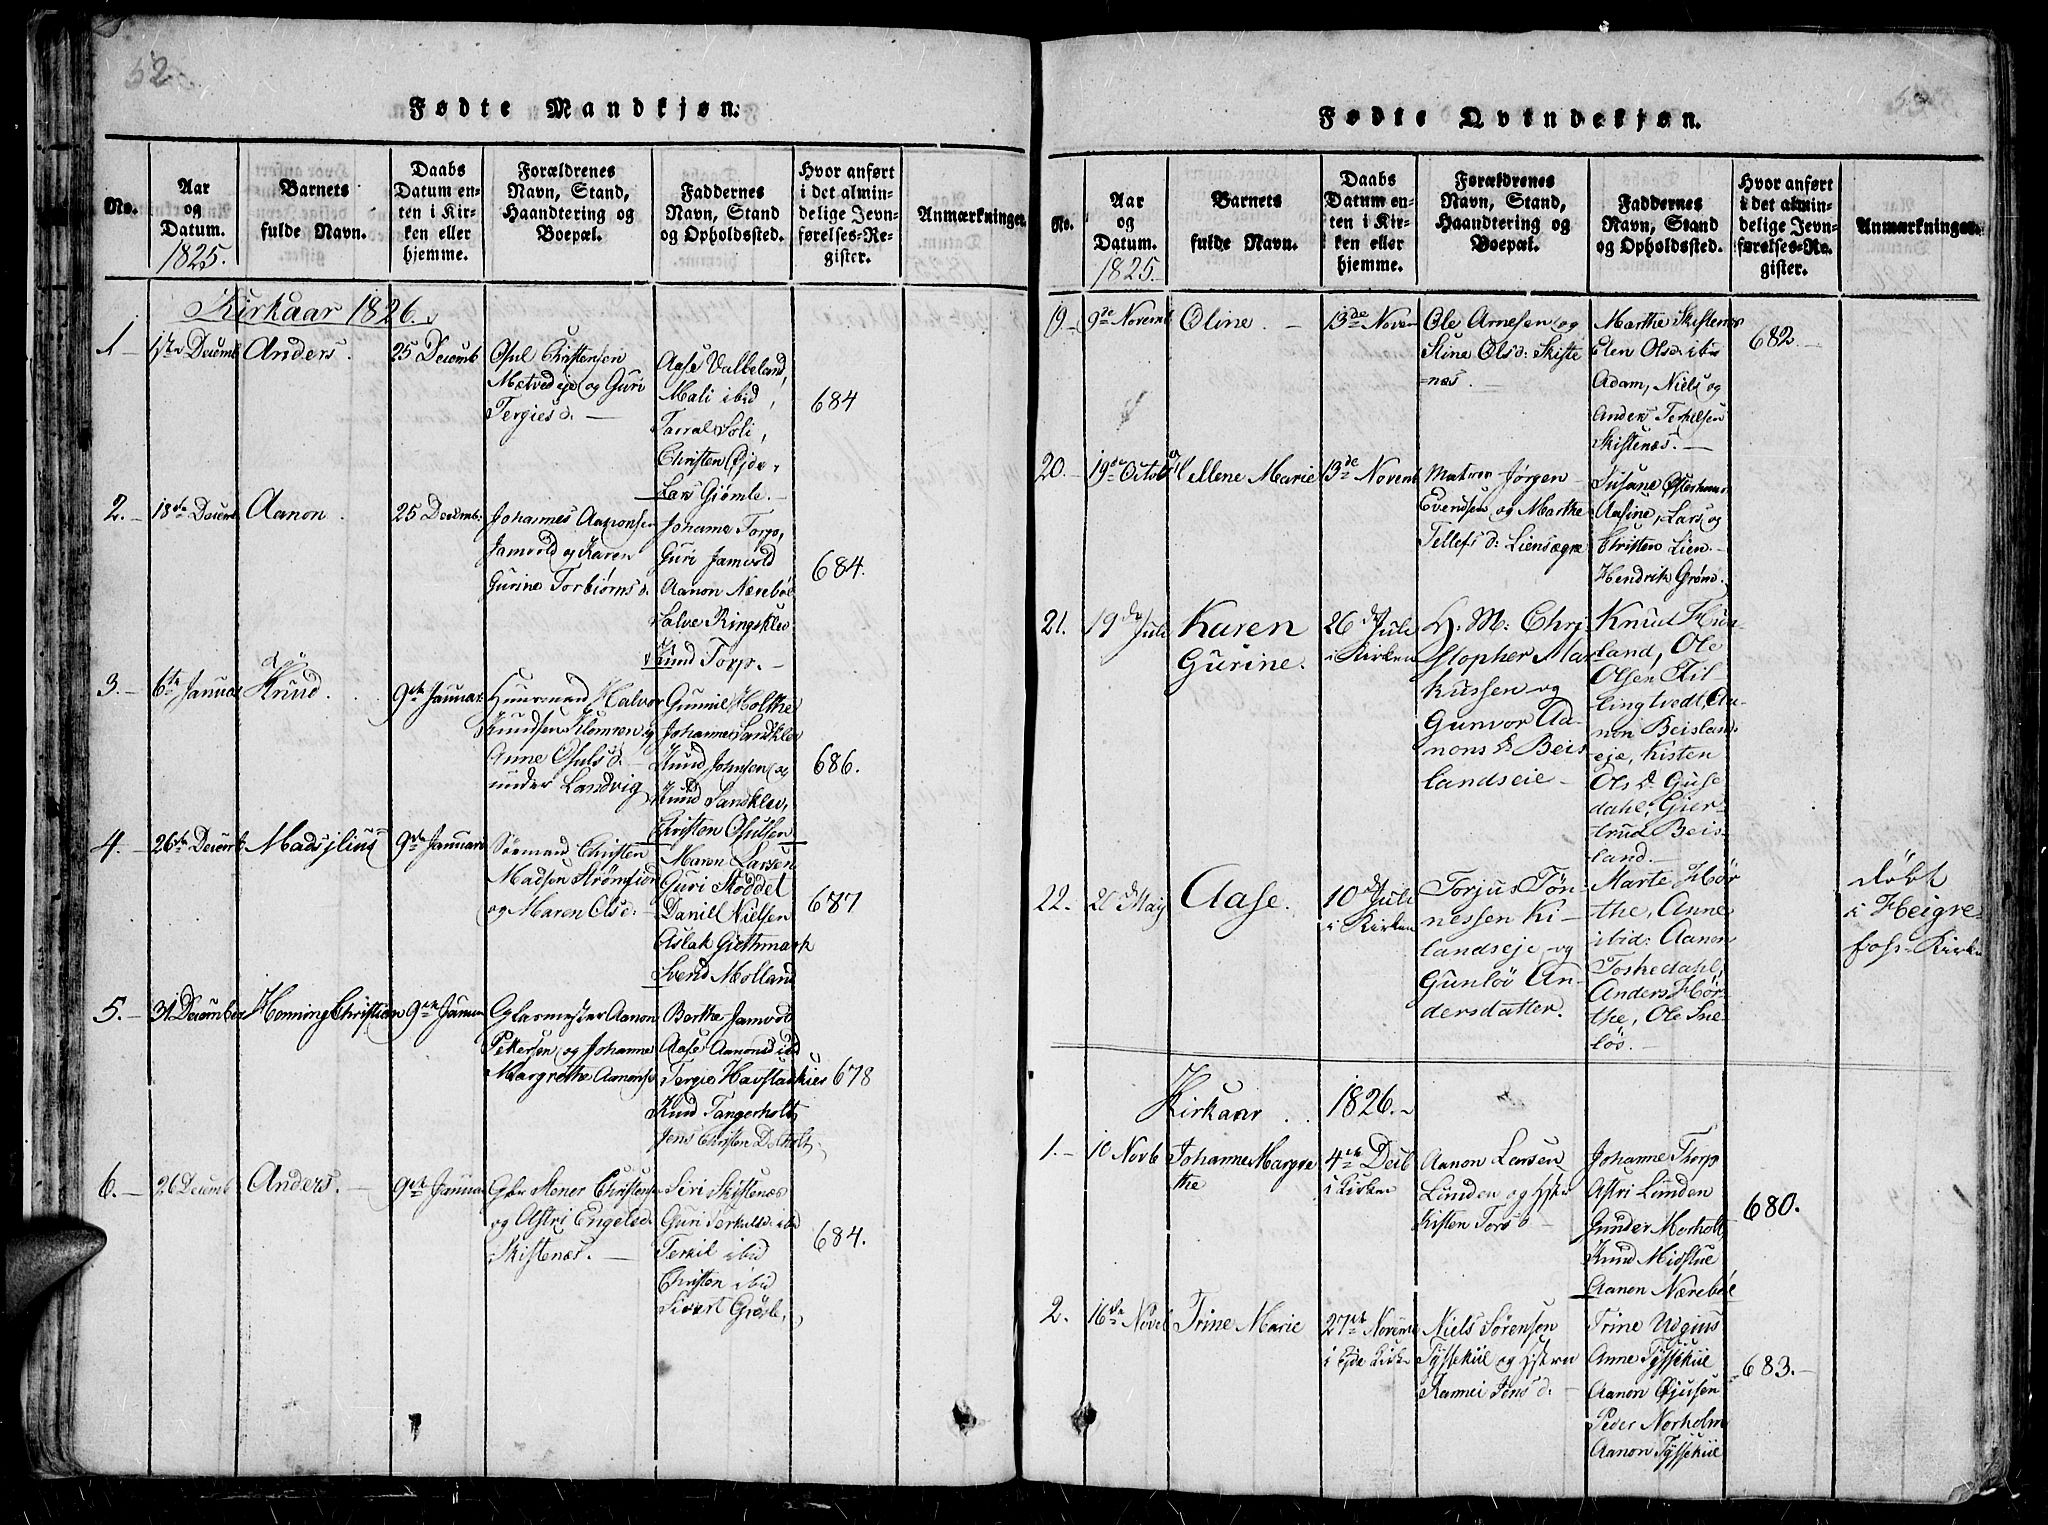 52
Fødte Mandkjøn.
No.
Aar
og
Datum.
1825.
Barnets
fulde Navn.
Daabs
Datum en-
ten i Kir-
ken eller
hjemme.
Forældrenes
Navn, Stand,
Haandtering og
Boepæl.
Faddernes
Navn, Stand
og Opholdssted.
Hvor anført
i det almin-
delige Jevn-
førelses-Re-
gister.
Anmærkninger.
Kirkaar 1826.
1
Decemb
Anders.
25 Decemb
Osul Christensen
og Guri
Tergies d.
Aase Valbeland,
Mali ibid,
Tarral Soli,
Christen Ejde,
Lars Giømle.
684
2.
18de Decemb
Aanon
25 Decemb.
Johannes Aanonsen
Jamvold og Karen
Gurine Torbiørns d.
Johanne Torp,
Guri Jamvold
Aanon Nærebøe
Salve Ringsklev
Knud Torp.
684.
3.
6te Januar
Knud.
9de Januar.
Huusmand Halvor
Knudsen
Anne Osuls d.
under Landvig
Gunnil Holthe
Johanne Sandklev
Knud Johnsen
Knud Sandklev,
Christen Osulsen
686.
4.
26de Decemb
Madsjlius
9de Januari
Sømand Christen
Madsen
og Maren Olsd.
Maren Larsen
Guri Stoddet
Daniel Nielsen
Aslak
Svend Molland
687
5.
31 December
Henning Christian
9de Januar
Glarmester Aanon
Pettersen og Johanne
Margrethe Aanonsd
Berthe Jamvold
Aase Aanonsd ibd
Tergie
Knud Tangerholt
Jens Christen
678
6.
26 Decemb
Anders.
9de Januar
Christensen
og Astri Engelsd.
Skistenæs.
Siri Skistenæs
Guri Terkelsd. ibd
Terkil ibid
Christen ibid
Sivert
684.
Fødte Qvindekjøn.
No.
Aar
og
Datum.
1825.
Barnets
fulde Navn.
Daabs
Datum en-
ten i Kir-
ken eller
hjemme.
Forældrenes
Navn, Stand,
Haandtering og
Boepæl.
Faddernes
Navn, Stand
og Opholdssted.
Hvor anført
i det almin-
delige Jevn-
førelses-Re-
gister.
Anmærkninger.
19
9de Novemb
Oline.
13de Novem
Ole Arnesen og
Stine Olsd: Skiste
=næs.
Marthe Skistenæs
Elen Olsd: ibm
Adam, Niels og
Anders Terkelsen
Skistenæs.
682.
20.
19de Octob
Ellene Marie
13de Novemb
Matros Jørgen
Evendsen og Marthe
Tellefs d: Liensægre
Susane
Aasine, Lars og
Christen Lien.
Hendrik Grøns.
21.
19de Juli
Karen
Gurine.
26de Juli
i Kirken
H. M: Chri
stopher Mar
kussen og
Gunvor Aa-
nons d. Beis
landseie
Knud Hun-
land, Ole
Olsen Til-
lingtvedt, Aa-
non Beisland
eje, Kisten
Ols d. Guse
dahl, Gier-
trud Beis-
land.
22.
20 Maij
Aase.
10de Juli
i Kirken
Torjus Tøn-
nessen Ki-
landseje og
Gunlöv An-
dersdatter.
Marte Hør
the, Anne
ibid: Aanon
Toskedahl,
Anders Hør-
the, Ole Sne-
løs.
döbt
i Heigre-
fosse Kirke
Kirkaar 1826.
1.
10 Novb
Johanne Margre
the
4de Decb
i Kirken
Aanon Larsen
Lunden og Hstr
Kisten Tors d
Johanne Thorp
Astri Lunden
Gunder Morholt
Knud Midstue
Aanon Nærebøe
680.
2.
16de Novb
Trine Marie
27de Novemb
i Ejde Kirke
Niels Sørensen
Tÿssekiil og Hstruv
Jens d.
Trine
Anne Tÿssekiil
Aanon Ojusen
Peder Norholm
Aanon Tÿssekiil
683.